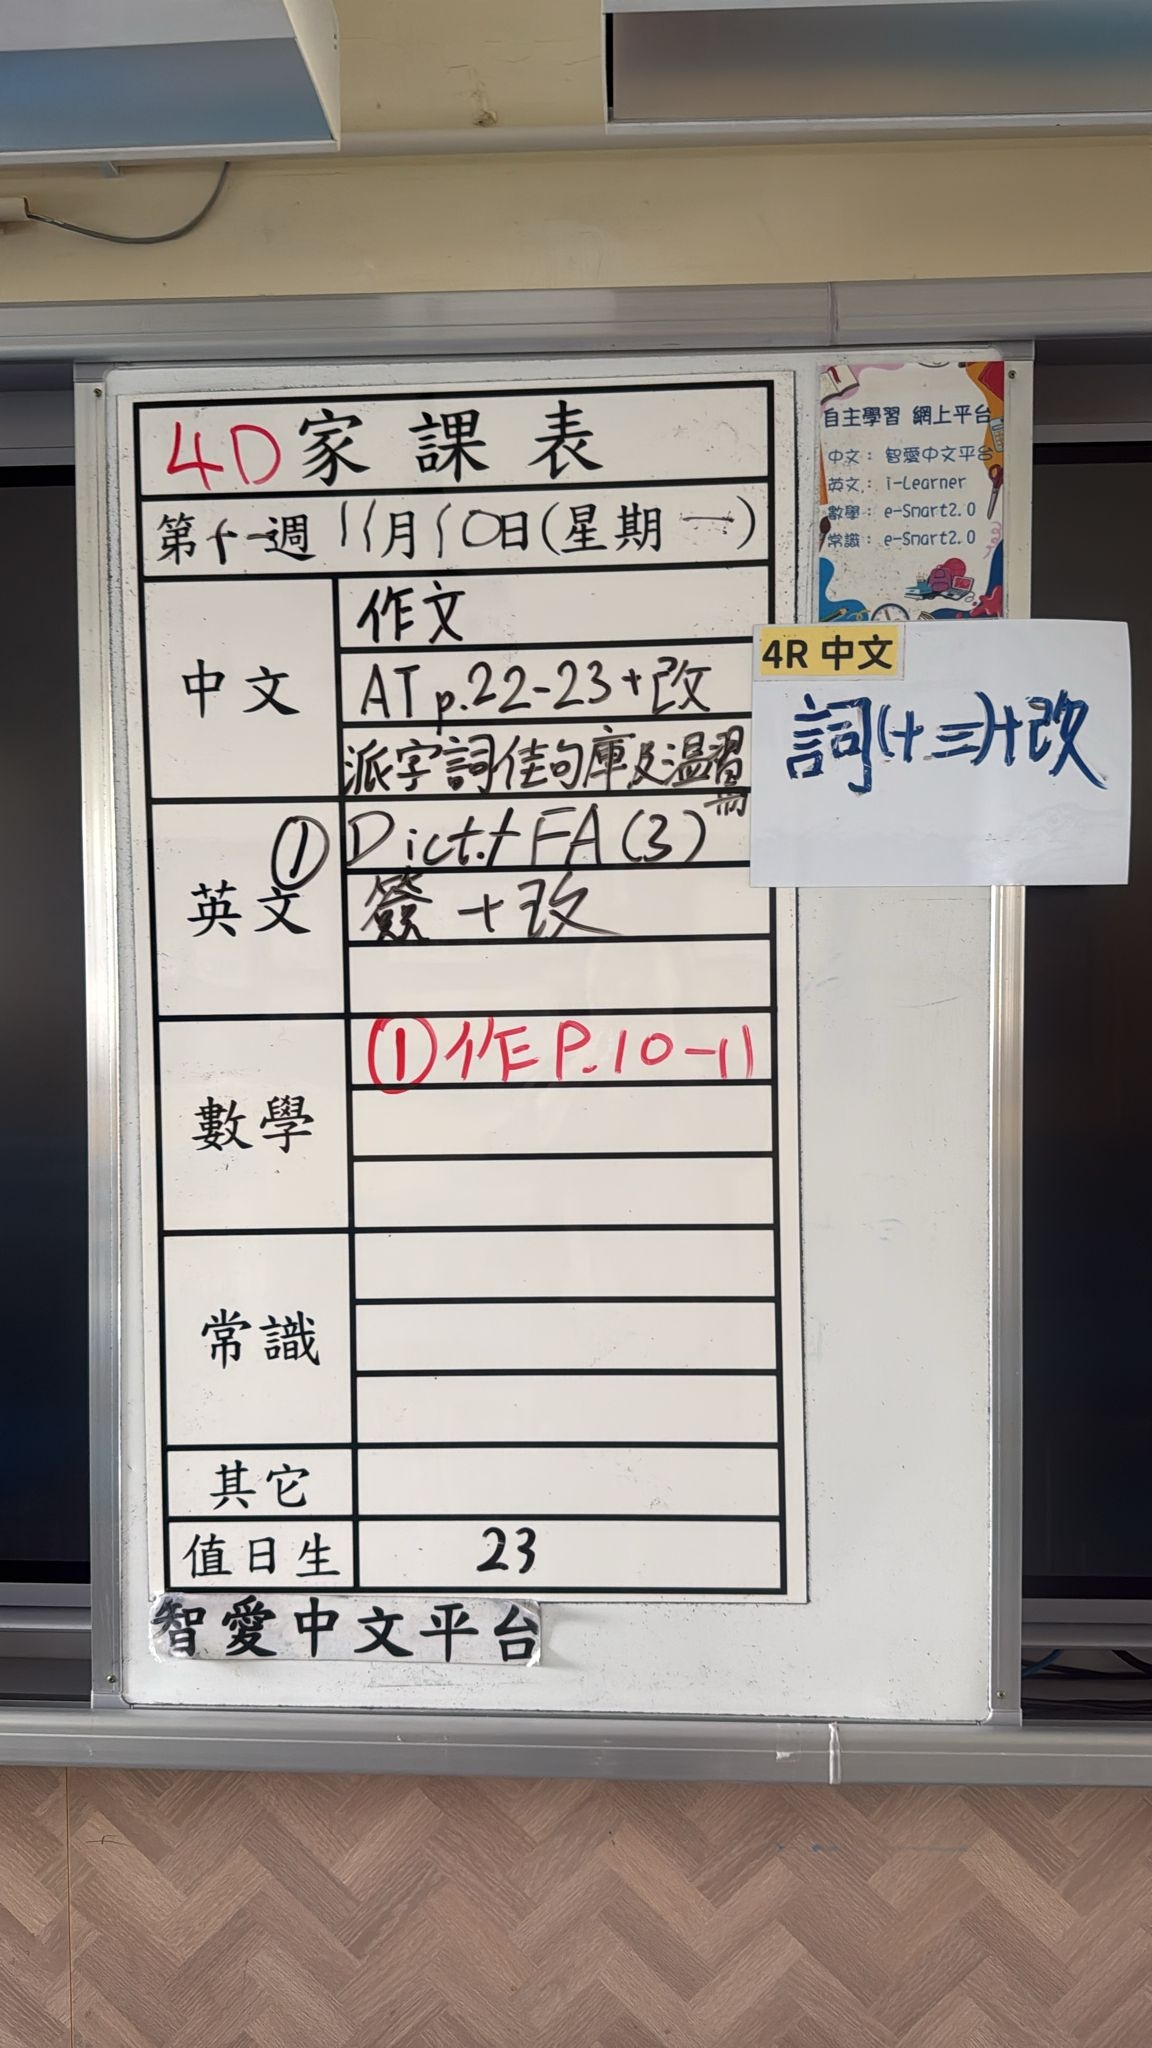 4D 家課表
第十一週 11月10日(星期一)
中文
作文
AT p.22-23+改
派字詞佳句庫及溫習冊
英文
① Dict.+FA(3)
簽+改
數學
①作 P.10-11
常識
其它
值日生
23
智愛中文平台
自主學習 網上平台
中文： 智愛中文平台
英文： i-Learner
數學： e-Smart2.0
常識： e-Smart2.0
4R 中文
詞(十三)+改